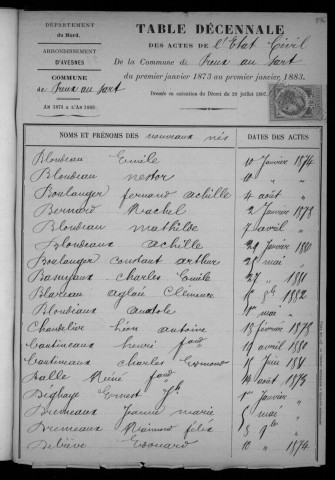 DÉPARTEMENT
du Nord.
ARRONDISSEMENT
D'AVESNES
COMMUNE
de Preux au Sart
AN 1873 A L'AN 1883.
TABLE DÉCENNALE
DES ACTES DE l'Etat Civil
De la Commune de Preux au Sart
du premier janvier 1873 au premier janvier 1883.
Dressée en exécution du Décret du 20 juillet 1807.
NOMS ET PRÉNOMS DES nouveaux nés DATES DES ACTES
Blondeau Emile 10 Janvier 1874
Blondeau nestor 10 "
Boulanger fernand achille 4 août "
Bernard Rachel 2 Janvier 1878
Blondeau mathilde 7 avril "
Blondeaux achille 29 Janvier 1880
Boulanger constant arthur 25 mai "
charles Emile 27 " 1881
Blareau aglaée Clémence 1882
Blondiaux anatole 1er mai "
Chandelier Léon antoine 18 février 1878
Cantineaux henri 19 avril 1880
Cantineaux charles Edmond 15 Juin 1881
Dalle René 14 août 1873
Déghaye Ernest 1er Janvier "
Dremeaux Jeanne marie 5 mai "
Dremeaux Raimond félix 5 "
Deliève Edouard 10 " 1874